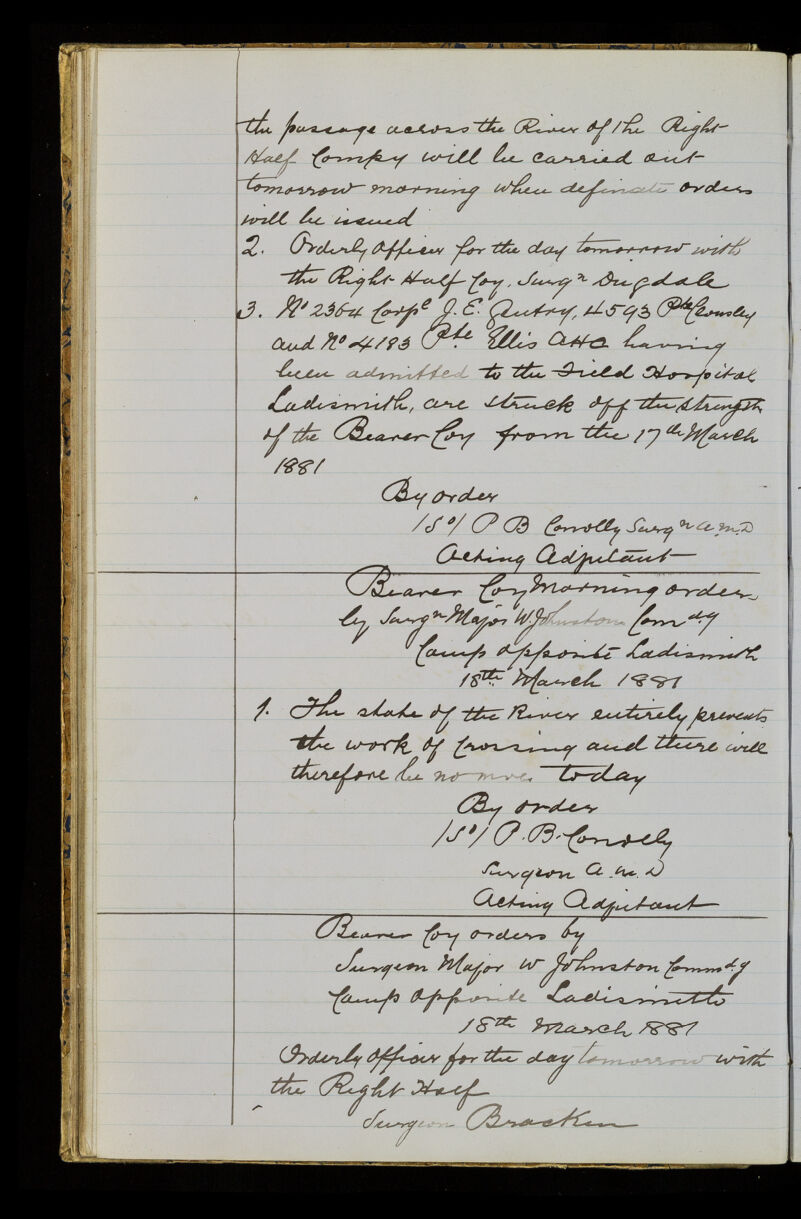 the passage across the River of the Right
Half Compy will be carried out
tomorrow morning when definate orders
will be issued
2. Orderly Officer for the day tomorrow with
the Right Half Coy. Surgn Dugdale
3. No 2364 Corpl J. E. 4593 Pte
and No 4183 Pte Ellis AHC having
been admitted to the Field Hospital
Ladismith, are struck off the strength
of the Bearer Coy from the 17th March
1881
By order
/Sd/ P B Conolly Surgn A.M.D
Acting Adjutant
Bearer Coy Morning orders
by Surgn Major W. Johnston Comdg
Camp opposite Ladismith
18th March 1881
1. The state of the River entirely prevents
the work of crossing and there will
therefore be no move today
By order
/Sd/ P. B. Conolly
Surgeon A.M.D
Acting Adjutant
Bearer Coy orders by
Surgeon Major W Johnston Commdg
Camp Opposite Ladismith
18th March 1881
Orderly Officer for the day tomorrow with
the Right Half
Surgeon Bracken